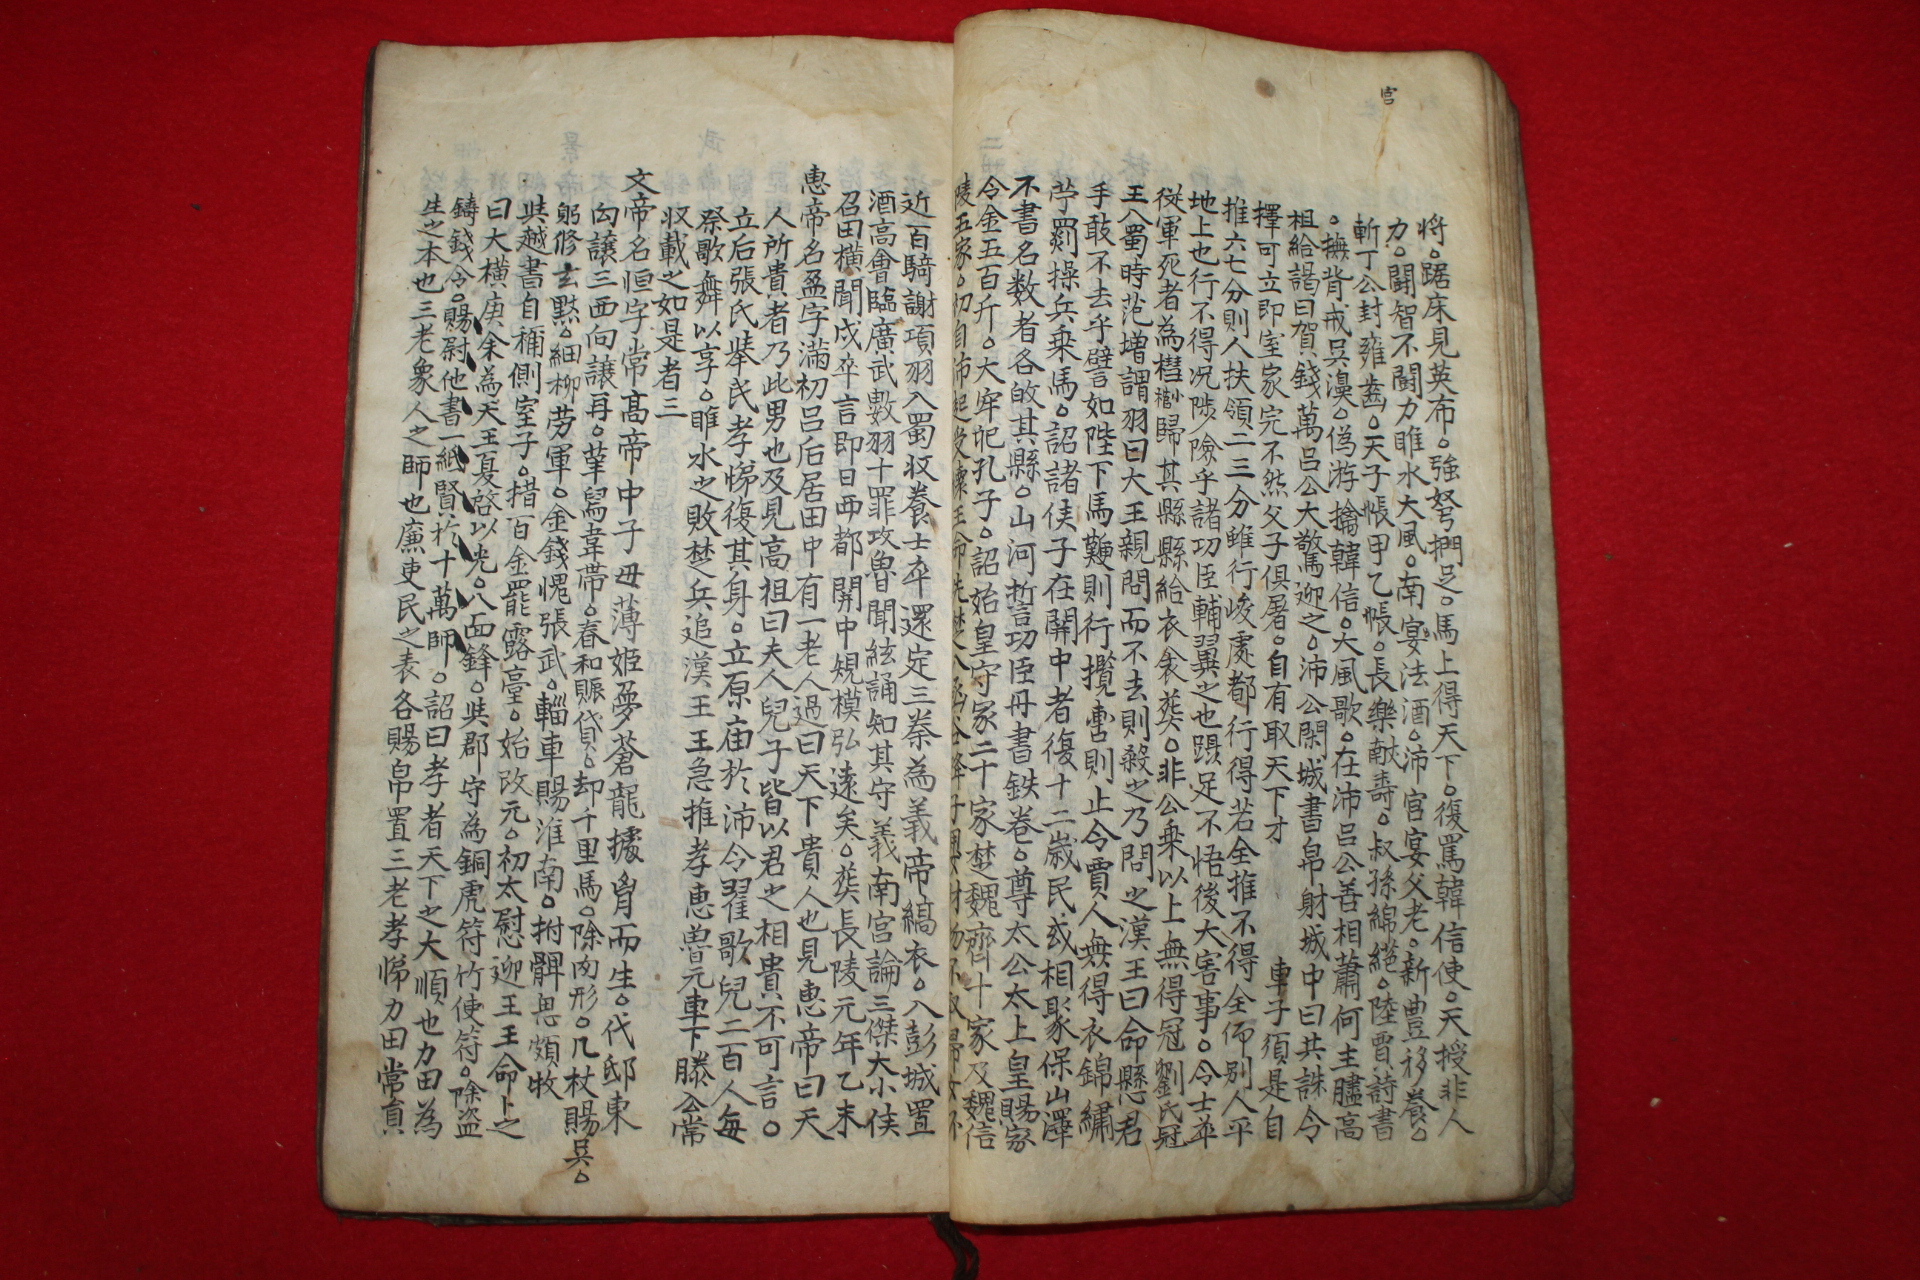 宮
將。踞床見英布。強弩捫足。馬上得天下。復罵韓信使。天授非人
力。鬪智不鬪力睢水大風。南宮法酒。沛宮宴父老。新豊移養。
斬丁公封雍齒。天子帳甲乙帳。長樂献壽。叔孫綿蕝。陸賈詩書
。撫背戒吳濞。偽游擒韓信。大風歌。在沛呂公善相蕭何主臚高
祖給謁曰賀錢萬呂公大驚迎之。沛公閑城書帛射城中曰共誅令
擇可立即室家完不然父子俱屠。自有取天下才 車子須是自
推六七分則人扶領二三分雖行峻處都行得若全推不得全命別人平
地上也行不得況陟險乎諸功臣輔翼之也躡足不悟後大害事。令士卒
從軍死者為槥櫘歸其縣縣給衣衾葬。非公乗以上無得冠劉氏冠
王入蜀時范増謂羽曰大王親問而不去則殺之乃問之漢王曰命懸君
手敢不去乎譬如陛下馬鞭則行攬轡則止令賈人無得衣錦繡
苧罽操兵乗馬。詔諸侯子在關中者復十二歲民或相聚保山澤
不書名数者各的其縣。山河誓功臣丹書鉄券。尊太公太上皇賜家
令金五百斤。大牢祀孔子。詔始皇守冢二十家楚魏齊十家及魏信
陵五家。初自沛起受懷王命
近百騎謝項羽入蜀收養士卒還定三秦為義帝縞衣。入彭城置
酒高會臨廣武數羽十罪攻魯聞絃誦知其守義南宮論三傑大小侯
召田橫聞戍卒言即日西都關中規模弘遠矣。葬長陵元年乙未
惠帝名盈字滿初呂后居田中有一老人過曰天下貴人也見惠帝曰天
人所貴者乃此男也及見高祖曰夫人兒子皆以君之相貴不可言。
立后張氏擧民孝悌復其身。立原庙於沛令翟歌兒二百人每
祭歌舞以享。睢水之敗楚兵追漢王王急推孝惠魯元車下滕公常
收載之如是者三
文帝名恒字常髙帝中子母薄姬夢蒼龍據胷而生。代邸東
向讓三西向讓再。革舄韋帶。春和賑貸。却千里馬。除肉形。几杖賜吳。
躬修玄黙。細柳劳軍。金錢愧張武。輜車賜淮南。拊髀思頗牧
與越書自稱側室子。惜百金罷露臺。始改元。初太慰迎王王命卜之
曰大橫庚余為天王夏啓以光。八面鋒。與郡守為銅虎符竹使符。除盗
鑄錢令。賜尉他書一紙賢於十萬師。詔曰孝者天下之大順也力田為
生之本也三老衆人之師也廉吏民之表各賜帛置三老孝悌力田常員